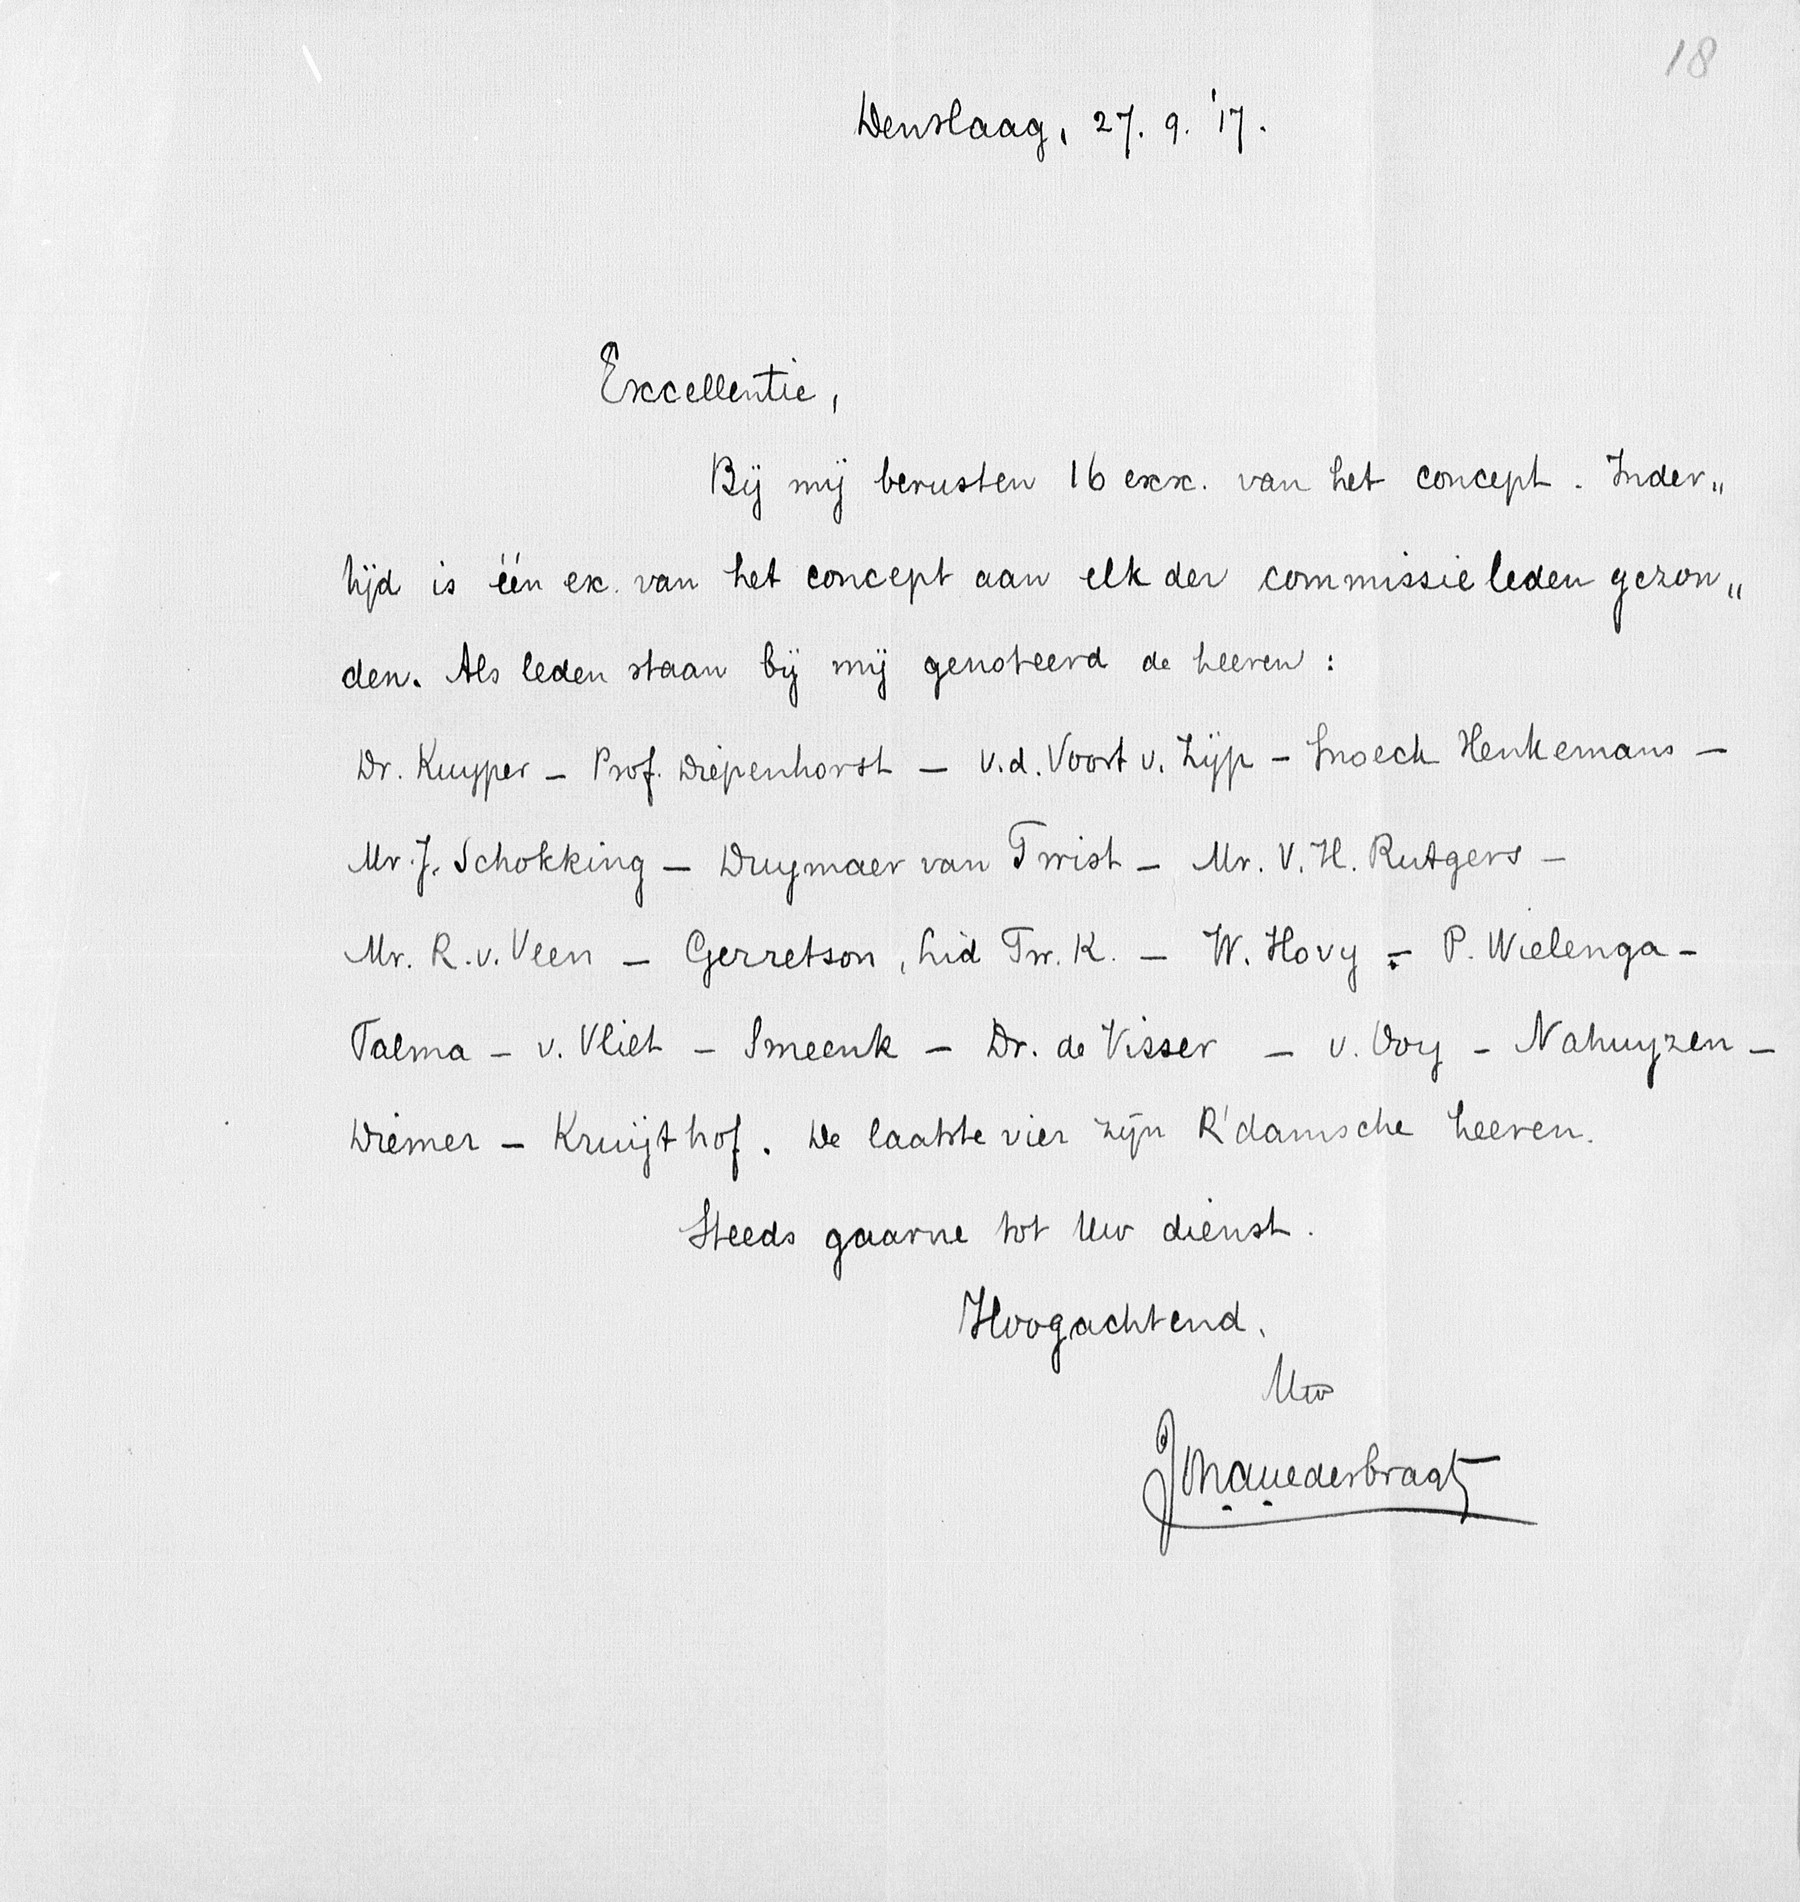 18
Den Haag, 27. 9. '17.
Excellentie,
Bij mij berusten 16 exx. van het concept. Inder„
tijd is één ex. van het concept aan elk der commissieleden gezon„
den. Als leden staan bij mij genoteerd de heeren:
Dr. Kuyper – Prof. Diepenhorst – v.d. Voort v. Zijp – Snoeck Henkemans –
Mr. J. Schokking – Duymaer van Twist – Mr. V. H. Rutgers –
Mr. R. v. Veen – Gerretson, lid Tw. K. – W. Hovy – P. Wielenga –
Talma – v. Vliet – Smeenk – Dr. de Visser – v. Ooy – Nahuyzen –
Diemer – Kruijthof. De laatste vier zijn R'damsche heeren.
Steeds gaarne tot Uw dienst.
Hoogachtend,
Uw